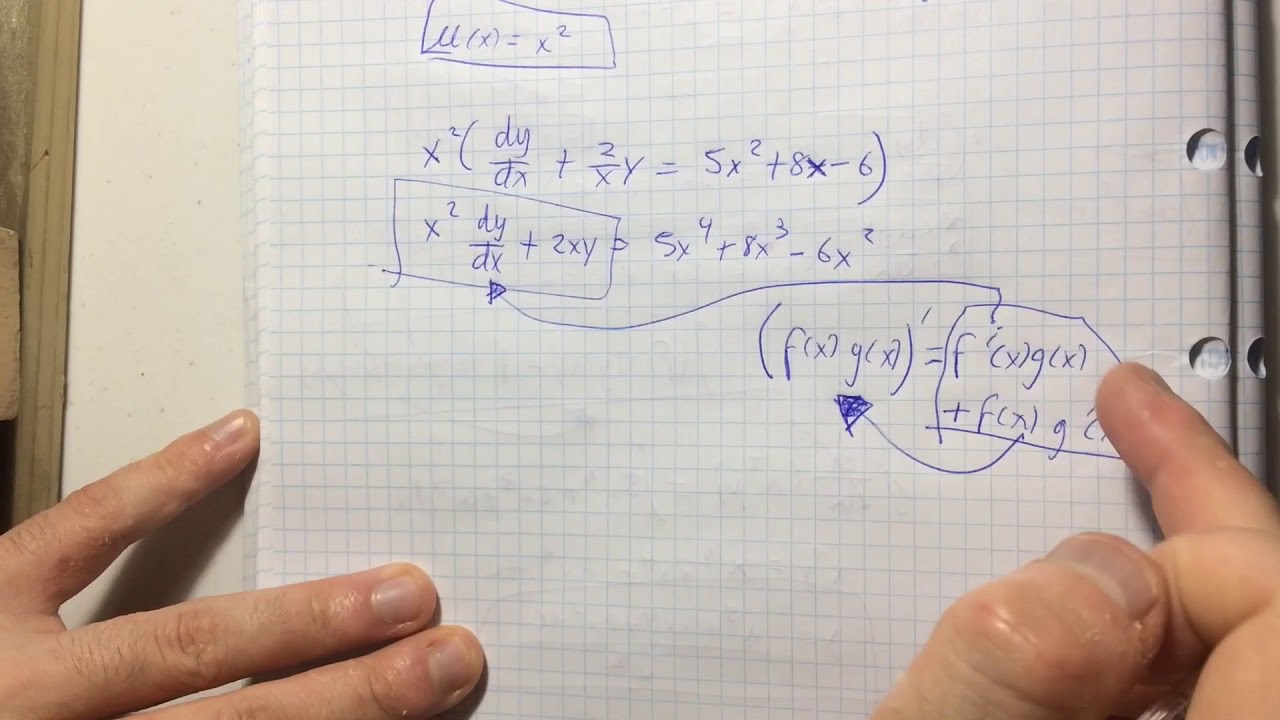 μ(x) = x²
x²( dy/dx + 2/x y = 5x² + 8x - 6 )
x² dy/dx + 2xy = 5x⁴ + 8x³ - 6x²
( f(x) g(x) )' = f'(x)g(x)
+ f(x) g'(x